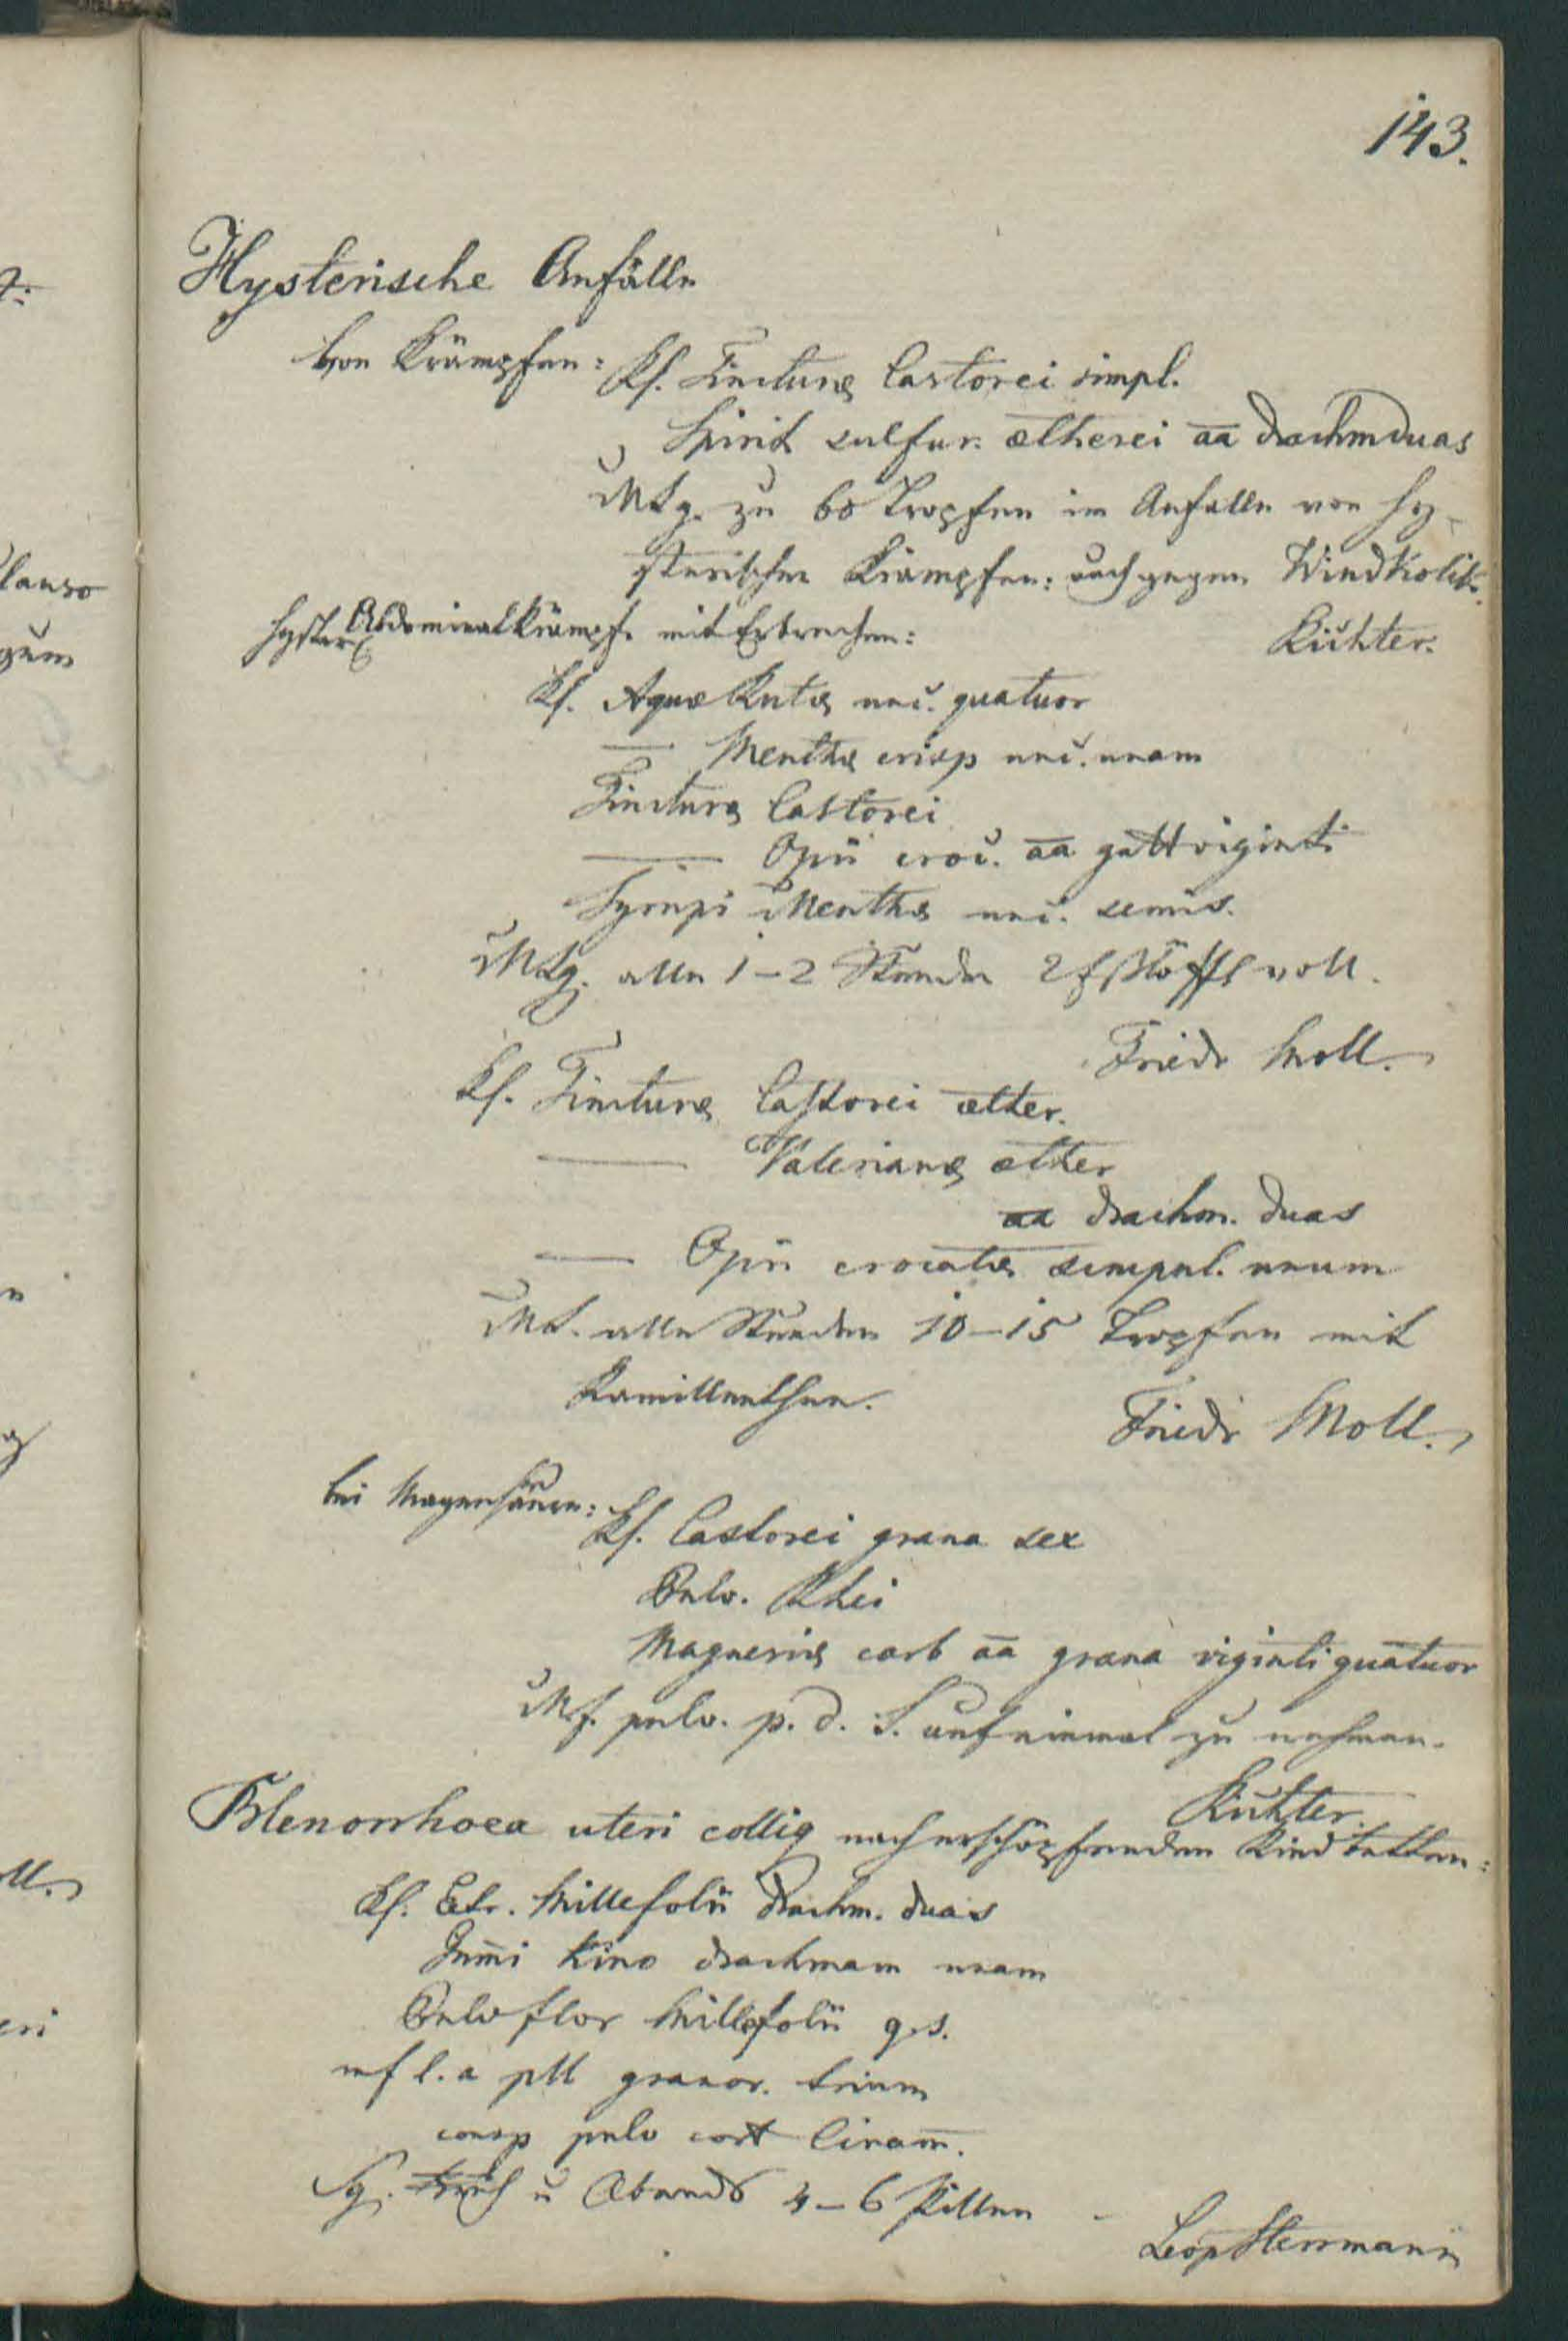 143.
Hysterische Anfälle
von Krämpfen: Rf. Tincturæ Castorei simpl.
Spirit sulfur. ætherei aa drachm duas
MSg. zu 60 Tropfen im Anfalle von hy-
sterischen Krämpfen: auch gegen Windkolik.
Richter.
Hyster Abdominalkrämpfe mit Erbrechen:
Rf. Aquæ Rutæ unc. quatuor
— Menthæ crisp unc. unam
Tincturæ Castorei
— Opii croc. aa gutt viginti
Syrupi Menthæ unc. semis.
MSg. alle 1–2 Stunden 2 Eßlöffl voll.
Friedr Moll.
Rf. Tincturæ Castorei æther.
— Valerianæ æther
aa drachm. duas
— Opii crocatæ scrupul. unum
MS. alle Stunden 10–15 Tropfen mit
Kamillenthee.
Friedr Moll.
bei Magensäure: Rf. Castorei grana sex
Pulv. Rhei
Magnesiæ carb aa grana viginti quatuor
Mf. pulv. p. d. S. auf einmal zu nehmen.
Richter.
Blenorrhoea uteri collig nach erschöpfenden Kindbetten:
Rf. Extr. Millefolii drachm. duas
Gum̄i Kino drachmam unam
Pulv flor Millefolii q.s.
mf l.a pll granor. trium
consp pulv cort Cinam̄.
Sg. Früh u Abends 4–6 Pillen
Leop Herrmann